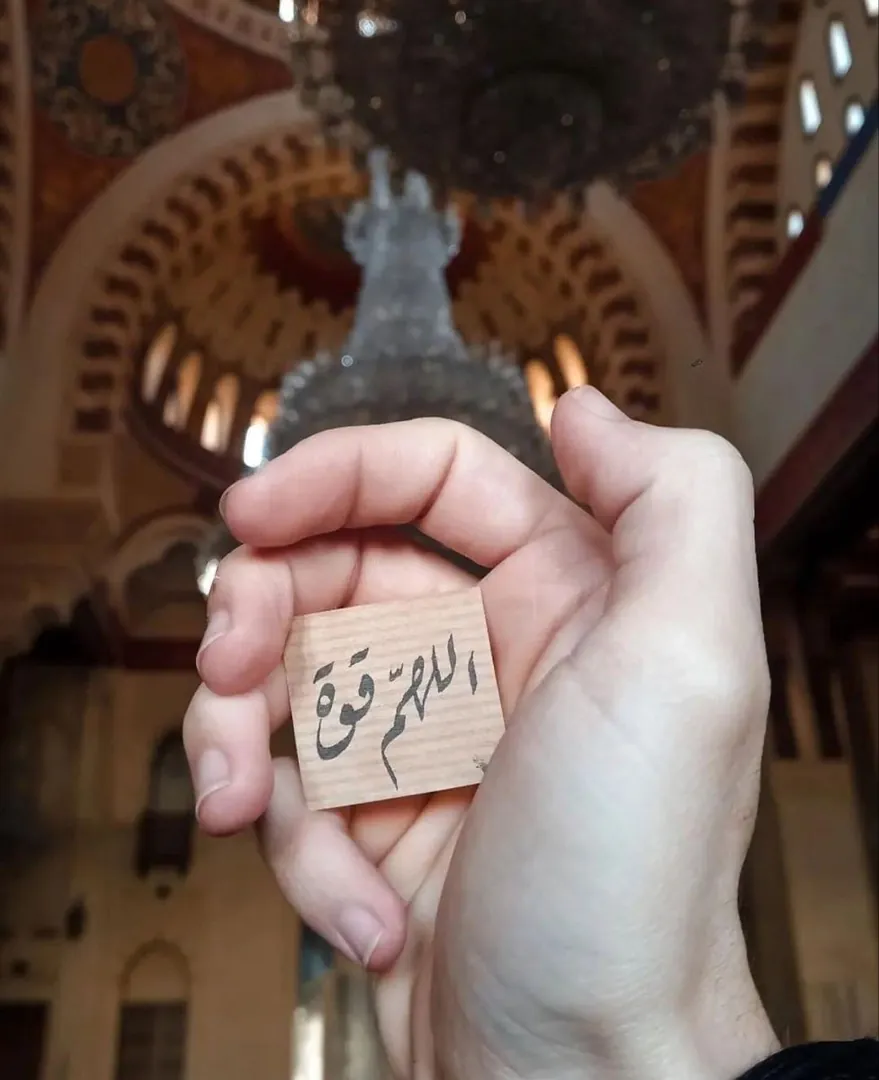 اللهمّ قوة